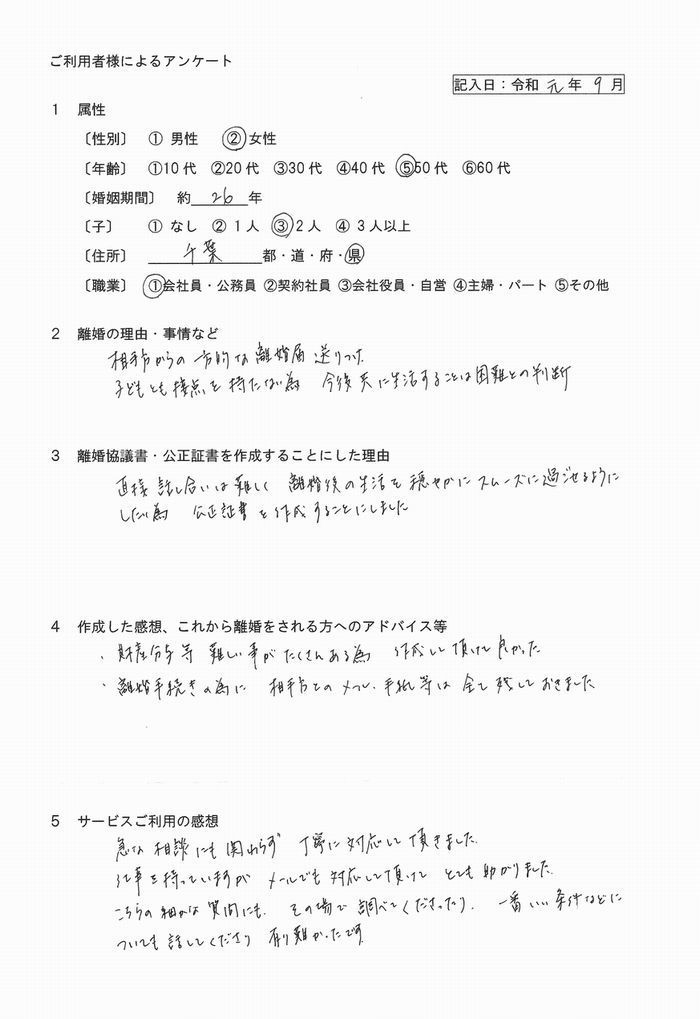 ご利用者様によるアンケート
記入日：令和 元 年 9 月
1 属性
〔性別〕 ① 男性 ② 女性
〔年齢〕 ①10代 ②20代 ③30代 ④40代 ⑤50代 ⑥60代
〔婚姻期間〕 約 26 年
〔子〕 ① なし ② 1人 ③ 2人 ④ 3人以上
〔住所〕 千葉 都・道・府・県
〔職業〕 ①会社員・公務員 ②契約社員 ③会社役員・自営 ④主婦・パート ⑤その他
2 離婚の理由・事情など
相手方からの一方的な離婚届送りつけ
子どもとも接点を持たない為 今後共に生活することは困難との判断
3 離婚協議書・公正証書を作成することにした理由
直接話し合いは難しく 離婚後の生活を穏やかにスムーズに過ごせるように
したい為 公正証書を作成することにしました
4 作成した感想、これから離婚をされる方へのアドバイス等
・財産分与等 難しい事がたくさんある為 作成して頂けて良かった
・離婚手続きの為に 相手方とのメール、手紙等は全て残しておきました
5 サービスご利用の感想
急な相談にも関わらず 丁寧に対応して頂きました。
仕事を持っていますが メールでも対応して頂けて とても助かりました。
こちらの細かな質問にも、その場で調べてくださったり、一番いい条件などに
ついても話してくださり 有り難かったです